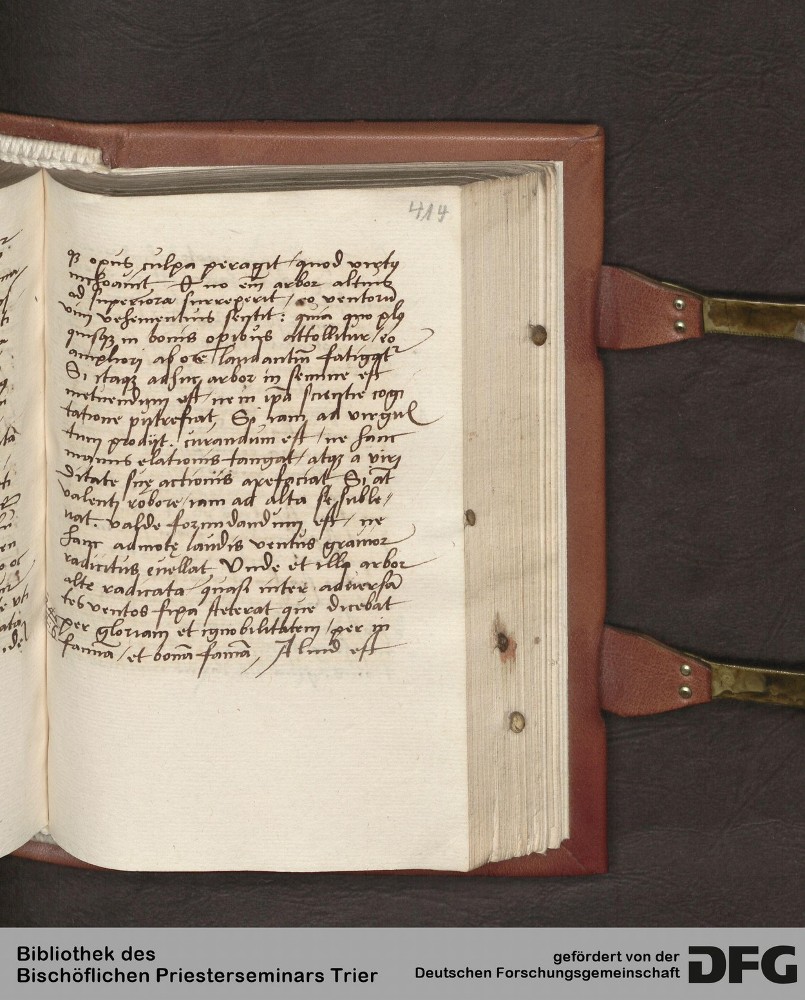 414
qꝫ opus culpa peragit / quod virtus
inchoauit Et no em̄ arbor altius
ad superiora surreperit / eo ventorū
vim vehementius sentit: quia quo plꝰ
quisqꝫ in bonis operibus attollitur / eo
ampliori ab ore laudantiū fatigatᷣ
Si itaqꝫ adhuc arbor in semine est
metuendum est / ne in ip̄a scientie cogi
tatione putrefiat, Si iam ad virgul
tum prodijt. curandum est / ne hanc
manus elationis tangat / atqꝫ a viri
ditate sue actionis arefaciat Si at̄
valenti robore / iam ad alta se suble⸗
uat. valde formidandum est / ne
hanc admote laudis ventus grauior
radicitus euellat Vnde et illa arbor
alte radicata quasi inter aduersā
tes ventos fixa steterat que dicebat
per gloriam et ignobilitatem / per in
famiā / et bonā famā, Aliud est
Bibliothek des
Bischöflichen Priesterseminars Trier
gefördert von der
Deutschen Forschungsgemeinschaft
DFG